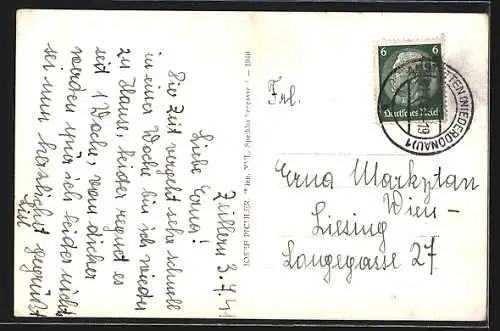 Zeillern 3.7.41
Liebe Erna!
Die Zeit vergeht sehr schnell
in einer Woche bin ich wieder
zu Hause, leider regnet es
seit 1 Woche, vom dicker
werden spür ich leider nichts
sei nun herzlichst gegrüßt
JOSEF PICHLER, Wien, VII., 1940
6 6
Deutsches Reich
(NIEDERDONAU) 1
Frl.
Erna Markytan
Wien –
Liesing
Langegasse 27